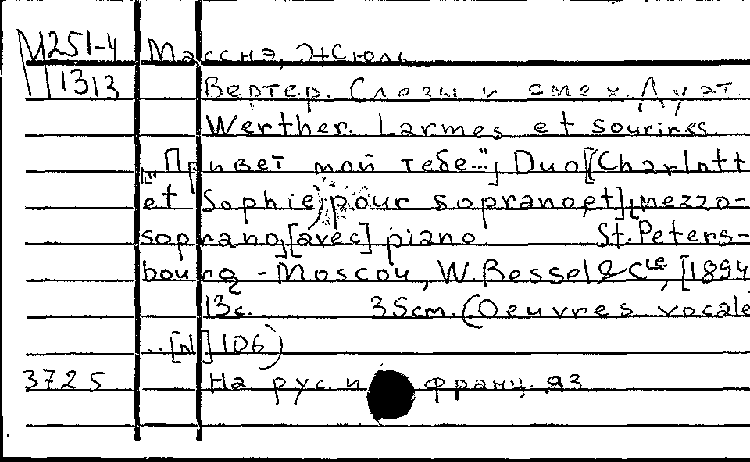 М251-4 Массне, Жюль
1313 Вертер. Слезы и смех. Дуэт.
Werther. Larmes et sourires
["Привет мой тебе..."] Duo [Charlott
et Sophie) pour soprano et], mezzo-
soprano, [avec] piano St. Peters-
bourg - Moscou, W. Bessel & Cie, [1894
13с. 35cm. (Oeuvres vocale
...[N] 106)
3725 На рус. и франц. яз